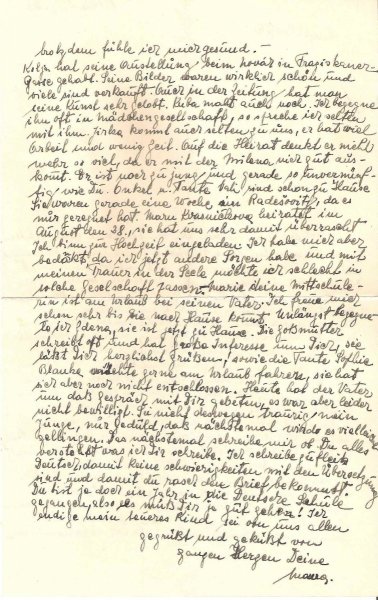 trotzdem fühle ich mich gesund. –
Kolja hat seine Ausstellung beim Novář in Fragiskaner-
Gasse gehabt. Seine Bilder waren wirklich schön und
viele sind verkauft. Auch in der Zeitung hat man
seine Kunst sehr gelobt. Luba malt auch noch. Ich begegne
ihn oft in Mädchengesellschaft, so spreche ich selten
mit ihm. Jirka kommt auch selten zu uns, er hat viel
Arbeit und wenig Zeit. Auf die Heirat denkt er nicht
mehr so viel, da er mit der Milena nicht gut aus-
komt. Er ist noch zu jung und gerade so unvernünf-
tig wie Du. Onkel u Tante sind schon zu Hause
Sie waren gerade eine Woche in Radešovitz, da es
nur geregnet hat. Maru heiratet im
August den 28, sie hat uns sehr damit überrascht
Ich bin zu Hochzeit eingeladen. Ich habe mich aber
bedankt da ich jetzt andere Sorgen habe und mit
meinen Trauer in der Seele möchte ich schlecht in
solche Gesellschaft passen. Marie deine Mitschüle-
rin ist am Urlaub bei seinen Vater. Ich freue mich
schon sehr bis Sie nach Hause kommt. Unlängst begegne-
te ich Zdena, sie ist jetzt zu Hause. Die Goßmutter
schreibt oft und hat große Interesse um Dich, sie
läßt Dich herzlichst grüßen, sowie die Tante Sophie
Blanka möchte gerne am Urlaub fahren, sie hat
sich aber noch nicht entschlossen. Heute hat der Vater
um daß Gespräch mit Dir gebeten, es war aber leider
nicht bewilligt. Sei nicht deswegen traurig, mein
Junge, nur Geduld, daß nächstemal wird es vielleicht
gelingen. Das nächstemal schreibe mir ob Du alles
verstehst was ich Dir schreibe. Ich schreibe zufleiß
Deutsch, damit keine schwierigkeiten mit den Übersetzung
sind und damit du rasch den Brief bekommst.
Du bist ja doch ein Jahr in die Deutsche Schule
gegangen, also es muß Dir ja gut gehen! Ich
endige mein teueres Kind Sei von uns allen
gegrüßt und geküßt von
ganzen Herzen Deine
Mama.